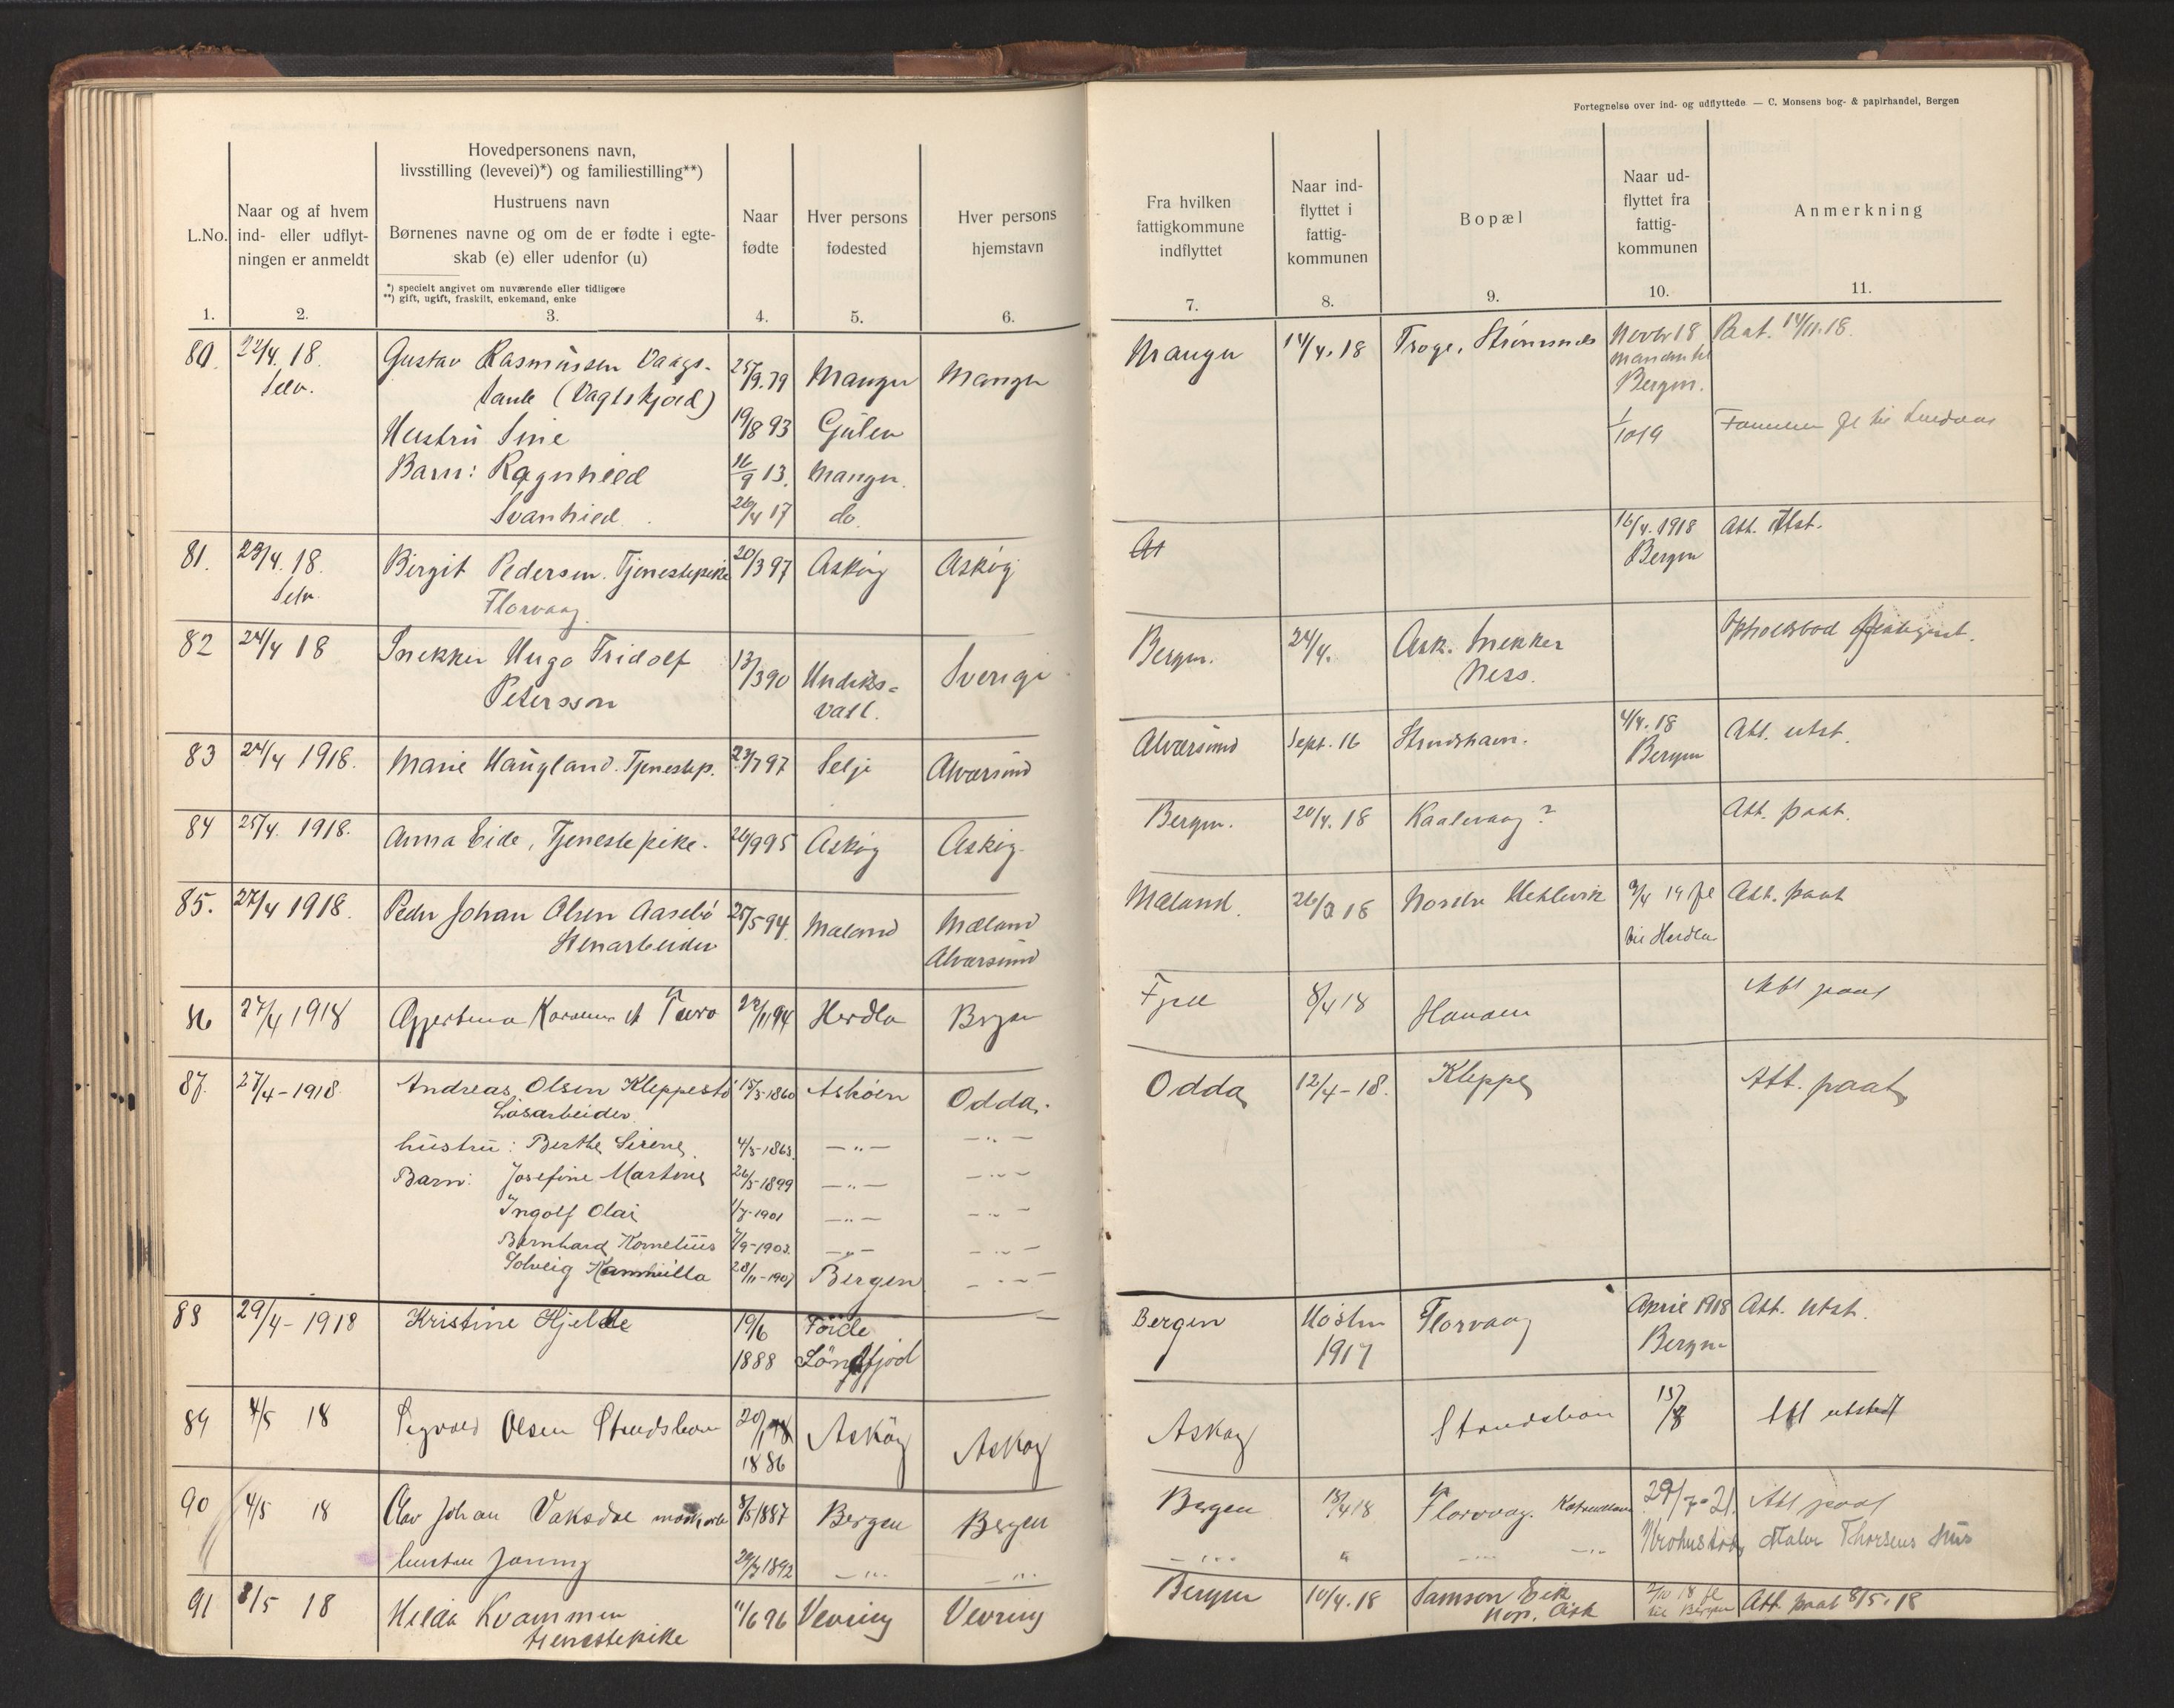 Fortegnelse over ind- og udflyttede — C. Monsens bog- & papirhandel, Bergen
L.No.
Naar og af hvem
ind- eller udflyt-
ningen er anmeldt
Hovedpersonens navn,
livsstilling (levevei)*) og familiestilling**)
Hustruens navn
Børnenes navne og om de er fødte i egte-
skab (e) eller udenfor (u)
*) specielt angivet om nuværende eller tidligere
**) gift, ugift, fraskilt, enkemand, enke
Naar
fødte
Hver persons
fødested
Hver persons
hjemstavn
Fra hvilken
fattigkommune
indflyttet
Naar ind-
flyttet i
fattig-
kommunen
Bopæl
Naar ud-
flyttet fra
fattig-
kommunen
Anmerkning
1. 2. 3. 4. 5. 6. 7. 8. 9. 10. 11.
80. 22/4. 18. Gustav Rasmussen Vaags- 25/9.79 Manger Manger Manger 14/4.18 Troge, Strømsnes Novbr 18 Paat. 14/11.18.
Selv. (Vagtskjold) Manden til
Bergen.
Hustru Sine 19/8 93 Gulen 1/10 19 Familien fl til Lindaas
Barn: Ragnhild 16/9 13. Manger.
Svanhild 26/4 17 do.
81. 23/4. 18. Birgit Pedersen. Tjenestepike 20/3 97 Askøy Askøy 16/4. 1918 Att. Utst.
Selv. Florvaag. Bergen
82 24/4 18 Snekker Hugo Fridolf 13/3 90 Hudiks- Sverige Bergen. 24/4. Ask. Snekker Opholdsbod
Petersson vall. Ness.
83 24/4 1918. Marie Haugland. Tjenestep. 23/7 97 Selje Alversund Alversund Sept. 16 Strudshavn. 4/4. 18 Att. utst.
Bergen
84 25/4. 1918. Anna Eide, Tjenestepike. 26/9 95 Askøy Askøy. Bergen. 20/4. 18 Kaalevaag? Att. paat.
85. 27/4 1918. Peder Johan Olsen Aasebø 25/5 94. Mæland Mæland Mæland. 26/3 18 Nordre Hetlevik 9/4 19 fl Att. paat
Stenarbeider Alversund til Herdla
86 27/4 1918 22/11 94 Herdla Bergen Fjell 8/4 18 Hanøen Att paat
87. 27/4-1918. Andreas Olsen Kleppestø 15/3-1860 Askøen Odda. Odda 12/4-18. Kleppe Att. paat
Løsarbeider
hustru: Berthe Serene. 4/3-1863. —"— —"—
Barn: Josefine Martine 26/5-1899 —"— —"—
Ingolf Olai 1/7-1901 —"— —"—
Bernhard Kornelius 7/9-1903. —"— —"—
Solveig Kamilla 28/11-1907 Bergen —"—
88 29/4-1918 Kristine Hjelle 19/6 Førde Bergen Høsten Florvaag April 1918 Att. Utst.
1888 Söndfjord 1917 Bergen
89 4/5 18 Sigvald Olsen Strudshavn 20/1 Askøy Askøy Askøy Strudshavn 15/8 Att utstedt
1886
90 4/5 18 Olav Johan Vaksdal 8/5 1887 Bergen Bergen Bergen 18/4 18 Florvaag. 29/7-21. Att paat
hustru Jenny 29/7 1892 —"— —"— —"— " —"— —"— Thorsens hus
91 8/5 18 Hilda Kvammen 11/6 96 Vevring Vevring Bergen 10/4. 18 Samson Eik 2/10 18 fl Att paat 8/5. 18
tjenestepike Nor. Ask til Bergen